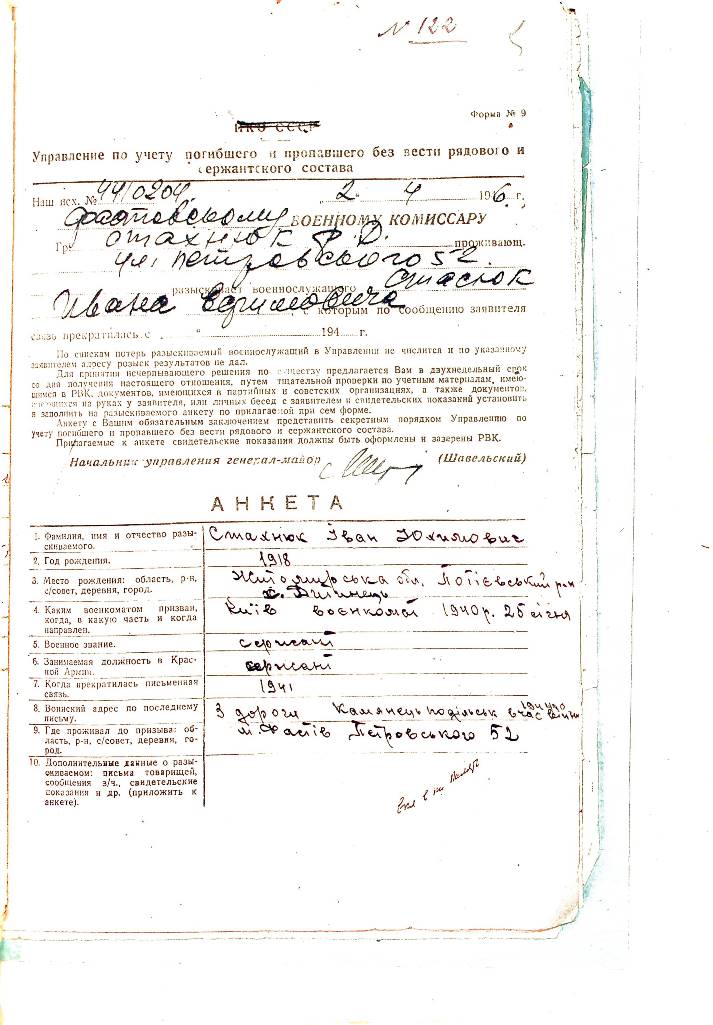 N 122
Форма № 9
НКО СССР
Управление по учету погибшего и пропавшего без вести рядового и
сержантского состава
Наш исх. № 44/0204 " 2 " 4 1946 г.
Фастовскому ВОЕННОМУ КОМИССАРУ
Гр. Стахнюк Ф. Д. проживающ.
ул. Петровского 52
разыскивает военнослужащего Стасюк
Ивана Ефимовича с которым по сообщению заявителя
связь прекратилась с " " 194 г.
По спискам потерь разыскиваемый военнослужащий в Управлении не числится и по указанному
заявителем адресу розыск результатов не дал.
Для принятия исчерпывающего решения по существу предлагается Вам в двухнедельный срок
со дня получения настоящего отношения, путем тщательной проверки по учетным материалам, имею-
щимся в РВК, документов, имеющихся в партийных и советских организациях, а также документов,
имеющихся на руках у заявителя, или личных бесед с заявителем и свидетельских показаний установить
и заполнить на разыскиваемого анкету по прилагаемой при сем форме.
Анкету с Вашим обязательным заключением представить секретным порядком Управлению по
учету погибшего и пропавшего без вести рядового и сержантского состава.
Прилагаемые к анкете свидетельские показания должны быть оформлены и заверены РВК.
Начальник управления генерал-майор (Шавельский)
АНКЕТА
1. Фамилия, имя и отчество разы-
скиваемого. Стахнюк Іван Юхимович
2. Год рождения. 1918
3. Место рождения: область, р-н,
с/совет, деревня, город. Житомирська обл. Потієвський р-н
4. Каким военкоматом призван,
когда, в какую часть и когда
направлен. Київ воєнкомат 1940 р. 25 січня
5. Военное звание. сержант
6. Занимаемая должность в Крас-
ной Армии. сержант
7. Когда прекратилась письменная
связь. 1941
8. Воинский адрес по последнему
письму. З дороги Камянець подільськ в час війни
9. Где проживал до призыва: об-
ласть, р-н, с/совет, деревня, го-
род. м. Фастів Петровського 52
10. Дополнительные данные о разы-
скиваемом: письма товарищей,
сообщения з/ч., свидетельские
показания и др. (приложить к
анкете).